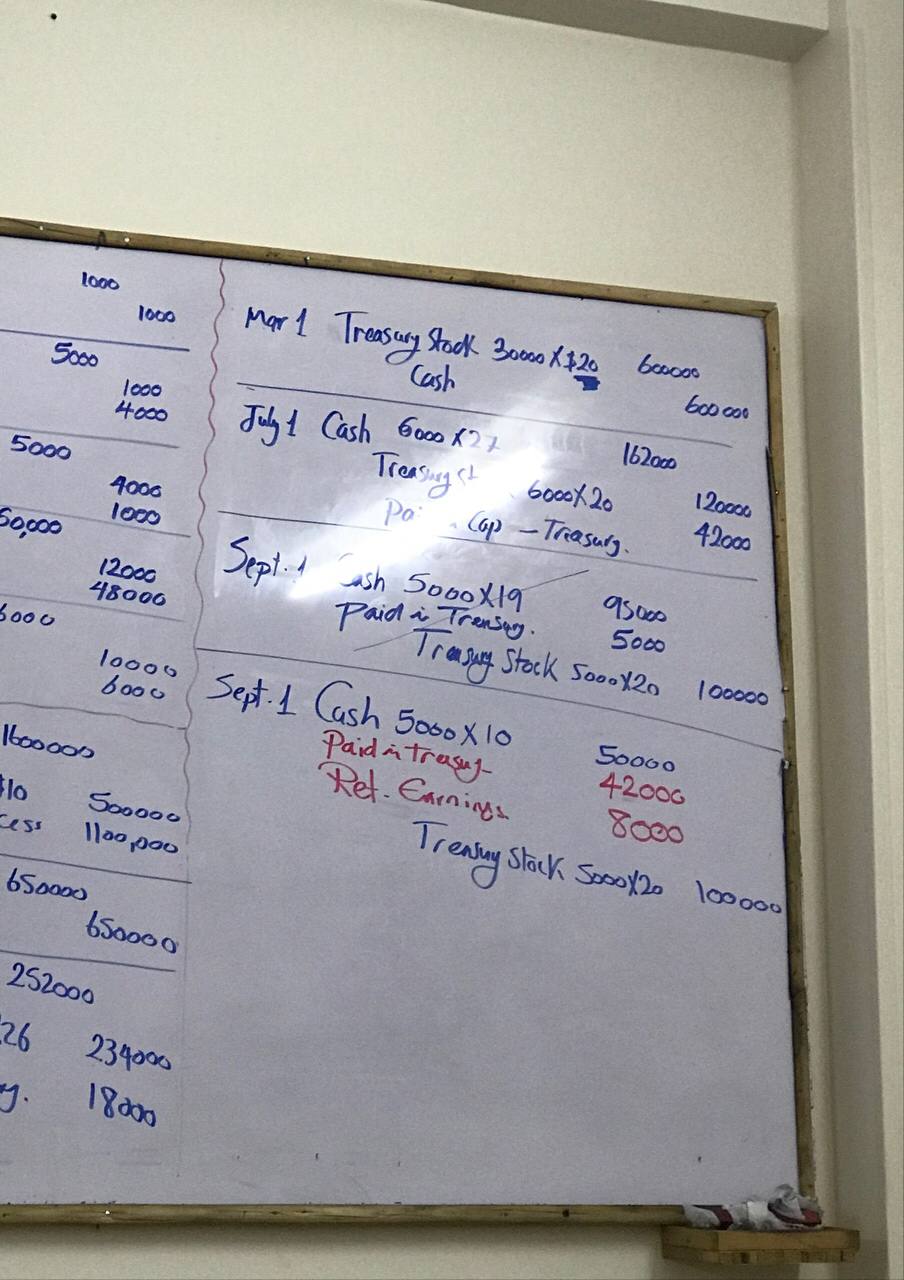 1000
1000
5000
1000
4000
5000
4000
1000
12000
48000
10000
6000
1600000
500000
1100,000
650000
650000
252000
26 234000
18000
Mar 1 Treasury Stock 30000 X $20 600000
Cash 600000
July 1 Cash 6000 X 27 162000
Treasury St 6000 X 20 120000
Cap - Treasury. 42000
Sept. 1 Cash 5000 X 19 95000
Paid in Treasury. 5000
Treasury Stock 5000 X 20 100000
Sept. 1 Cash 5000 X 10 50000
Paid in Treasury 42000
Ret. Earnings 8000
Treasury Stock 5000 X 20 100000